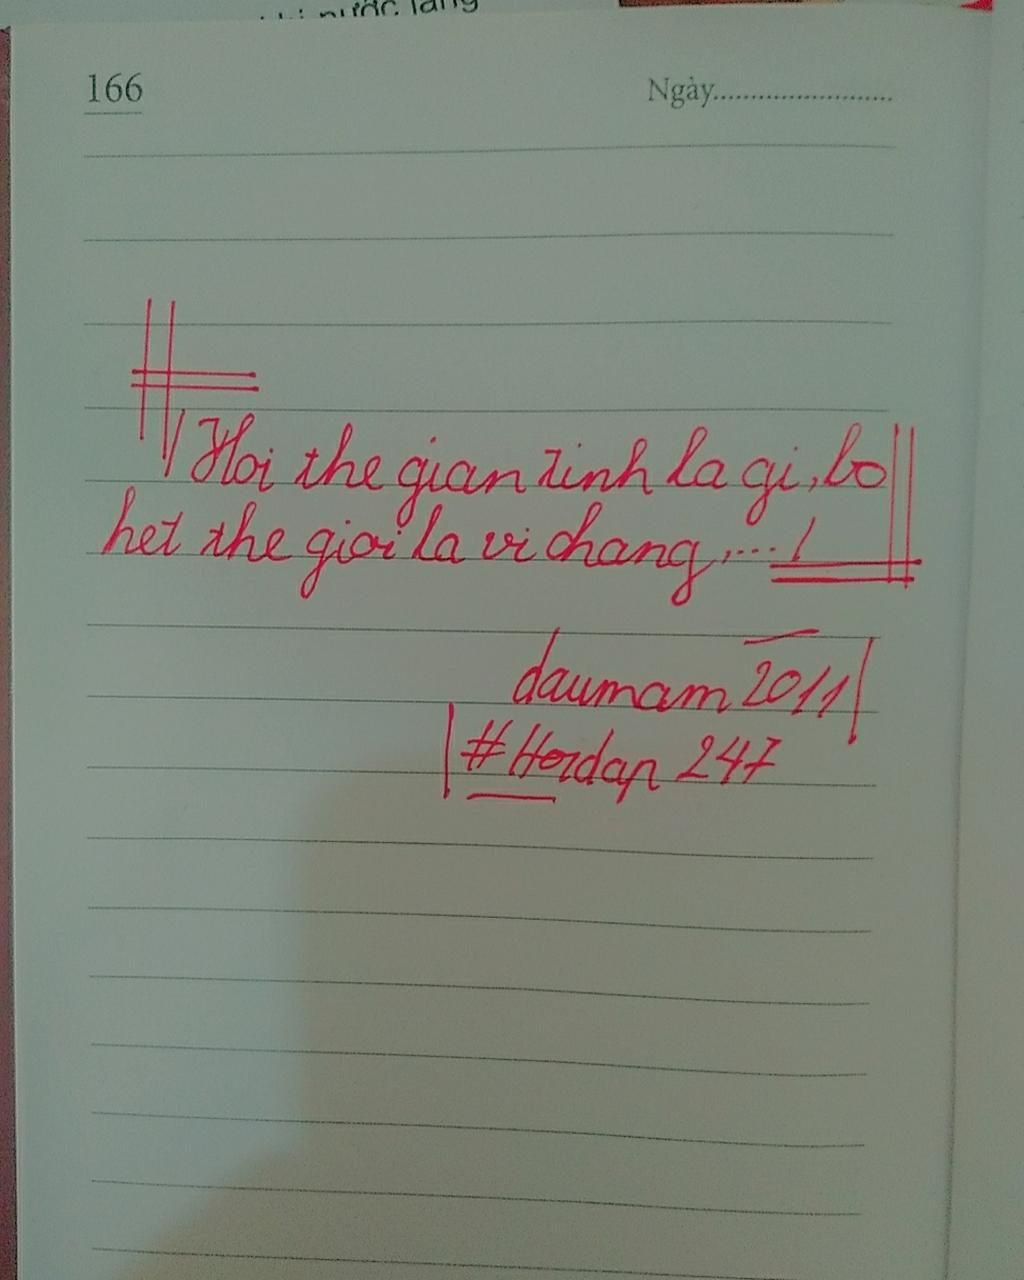 nước lăng
166
Ngày........................
Hoi the gian tinh la gi, bo
het the gioi la vi chang,...!
daumam 2011
#Hoidap 247